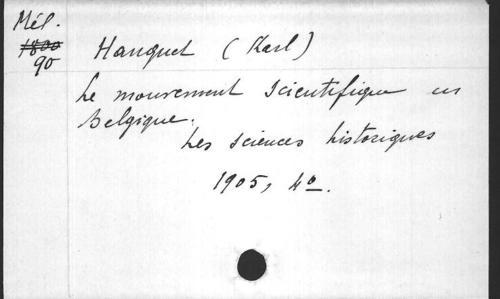 Mél.
1800
90
Hanquet (Karl)
Le mouvement scientifique en
Belgique.
Les sciences historiques
1905, 4º.